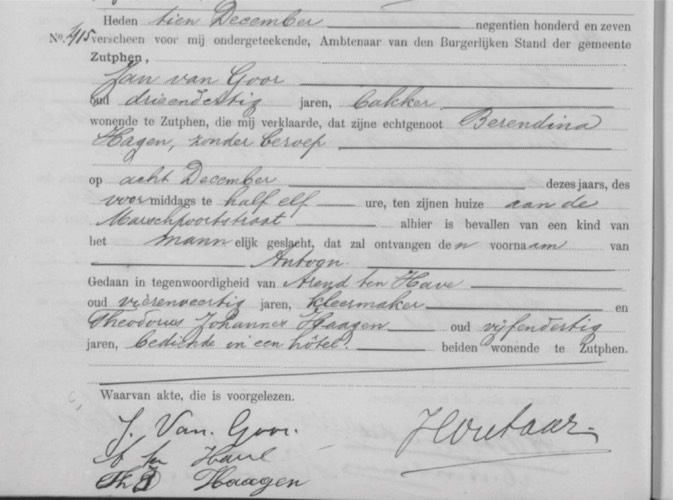 Heden tien December negentien honderd en zeven
No. 415 verscheen voor mij ondergeteekende, Ambtenaar van den Burgerlijken Stand der gemeente
Zutphen,
Jan van Goor
oud drieendertig jaren, bakker
wonende te Zutphen, die mij verklaarde, dat zijne echtgenoot Berendina
Hagen, zonder beroep
op acht December dezes jaars, des
voormiddags te half elf ure, ten zijnen huize aan de
Marschpoortstraat alhier is bevallen van een kind van
het mannelijk geslacht, dat zal ontvangen den voornaam van
Antoon.
Gedaan in tegenwoordigheid van Arend ten Have
oud vierenveertig jaren, kleermaker en
Theodorus Johannes Haagen oud vijfendertig
jaren, bediende in een hôtel. beiden wonende te Zutphen.
Waarvan akte, die is voorgelezen.
J. Van. Goor.
A ten Have
Th J Haagen